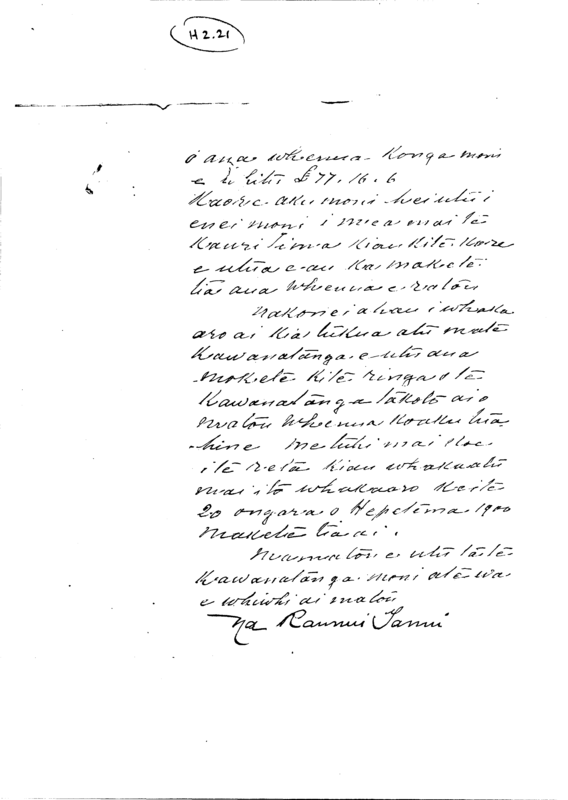 H2.21
o ana whenua. Konga moni
e £77.16.6
Kaore aku moni hei utu i
enei moni i mea mai te
Kauri Tima kiau kite. Kore
e utua e au ka makete
tia ana whenua e ratou
Nakoneiahau i whaka
aro ai kia tukua atu mate
Kawanatanga e utu ana
mokete kite ringa o te
Kawanatanga takoto ai o
matou whenua koaku tua
hine me tuhi mai koe
i te reta kiau whakaatu
mai ito whakaaro Keite
20 ongara o Hepetema 1900
maketetia ai.
Mamatou e utu ta te
Kawanatanga moni ate wa
e whiwhi ai matou
Na Raumui